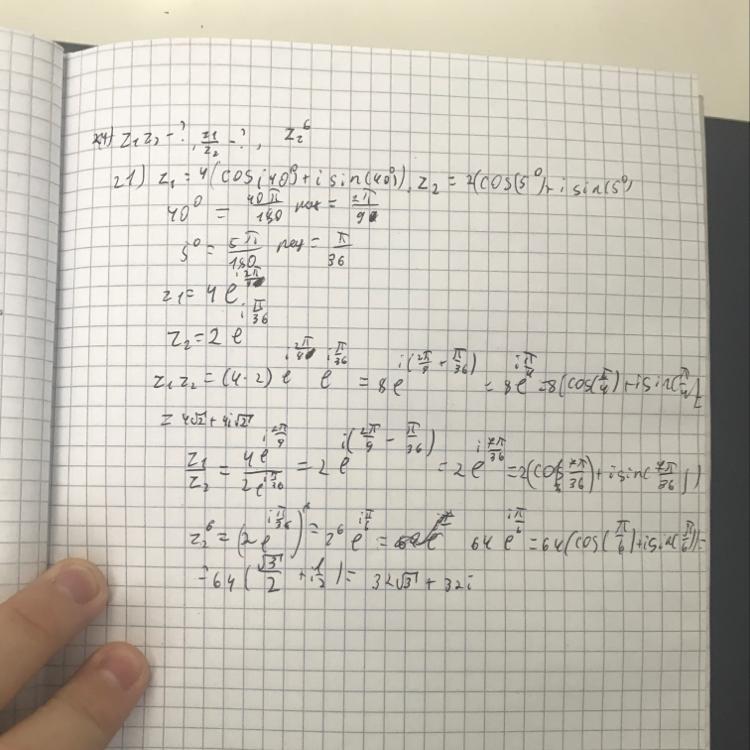 z₁z₂ - ?, z₁/z₂ - ?, z₂⁶
21) z₁ = 4(cos(40°) + i sin(40°)), z₂ = 2(cos(5°) + i sin(5°)
40° = 40π/180 рад = 2π/9
5° = 5π/180 рад = π/36
z₁ = 4 e^(i 2π/9)
z₂ = 2 e^(i π/36)
z₁z₂ = (4·2) e^(i 2π/9) e^(i π/36) = 8e^(i(2π/9 + π/36)) = 8e^(i π/4) = 8(cos(π/4) + i sin(π/4)
= 4√2 + 4i√2
z₁/z₂ = 4e^(i 2π/9) / 2e^(i π/36) = 2 e^(i(2π/9 - π/36)) = 2 e^(i 7π/36) = 2(cos(7π/36) + i sin(7π/36))
z₂⁶ = (2e^(i π/36))⁶ = 2⁶ e^(i π/6) = 64 e^(i π/6) = 64(cos(π/6) + i sin(π/6)) =
= 64(√3/2 + i 1/2) = 32√3 + 32i